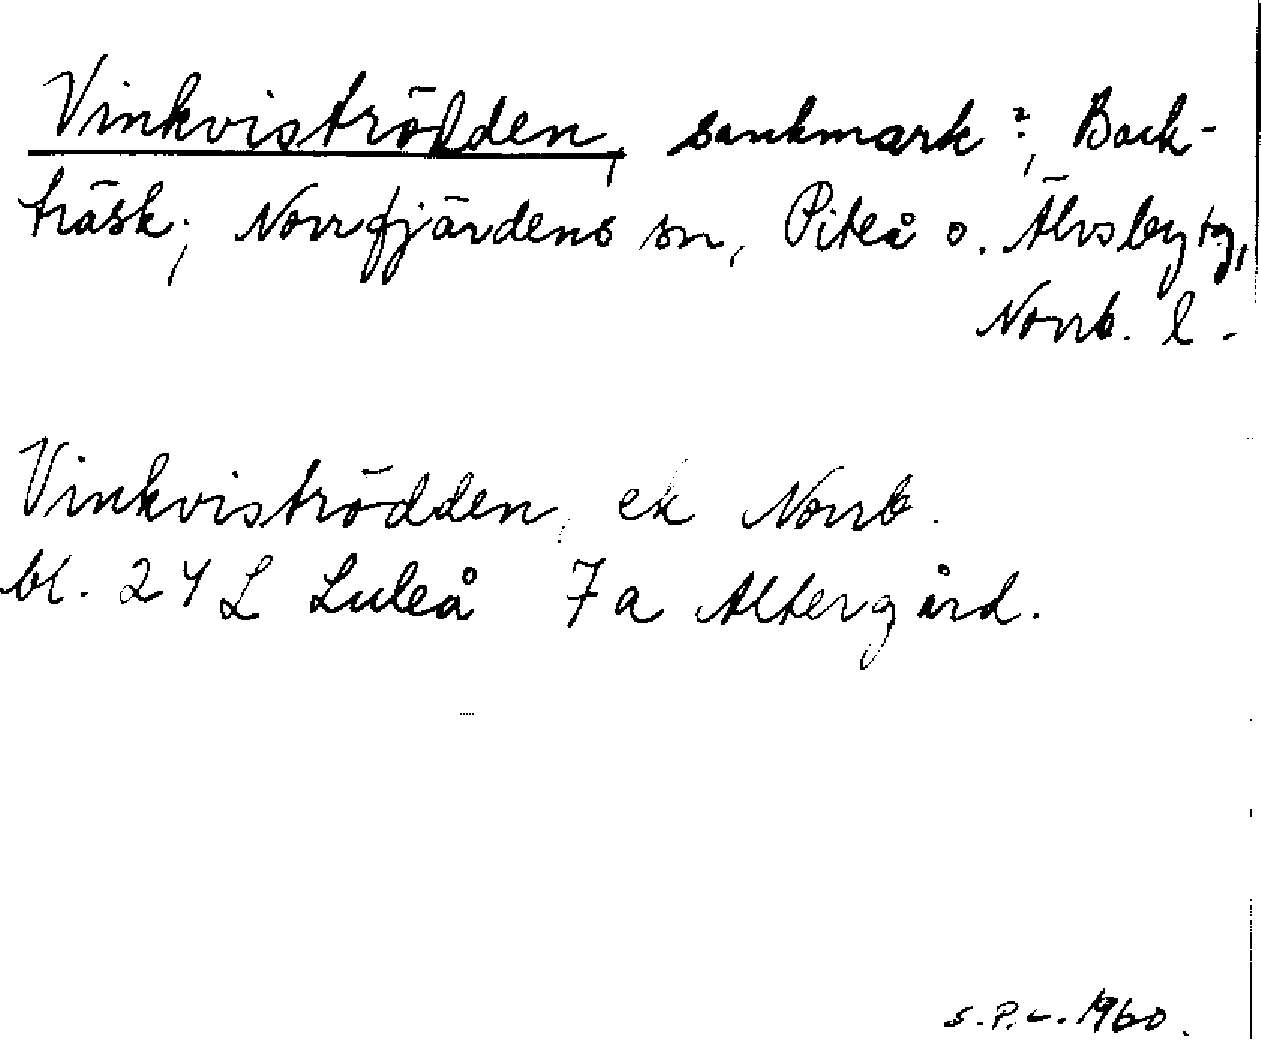 Vinkviströdden, sankmark?, Back-
träsk, Norrfjärdens sn, Piteå o. Älvsby tg,
Norrb. l.
Vinkviströdden, ek Norrb.
bl. 24 L Luleå 7a Altergård.
S.P.L. 1960.